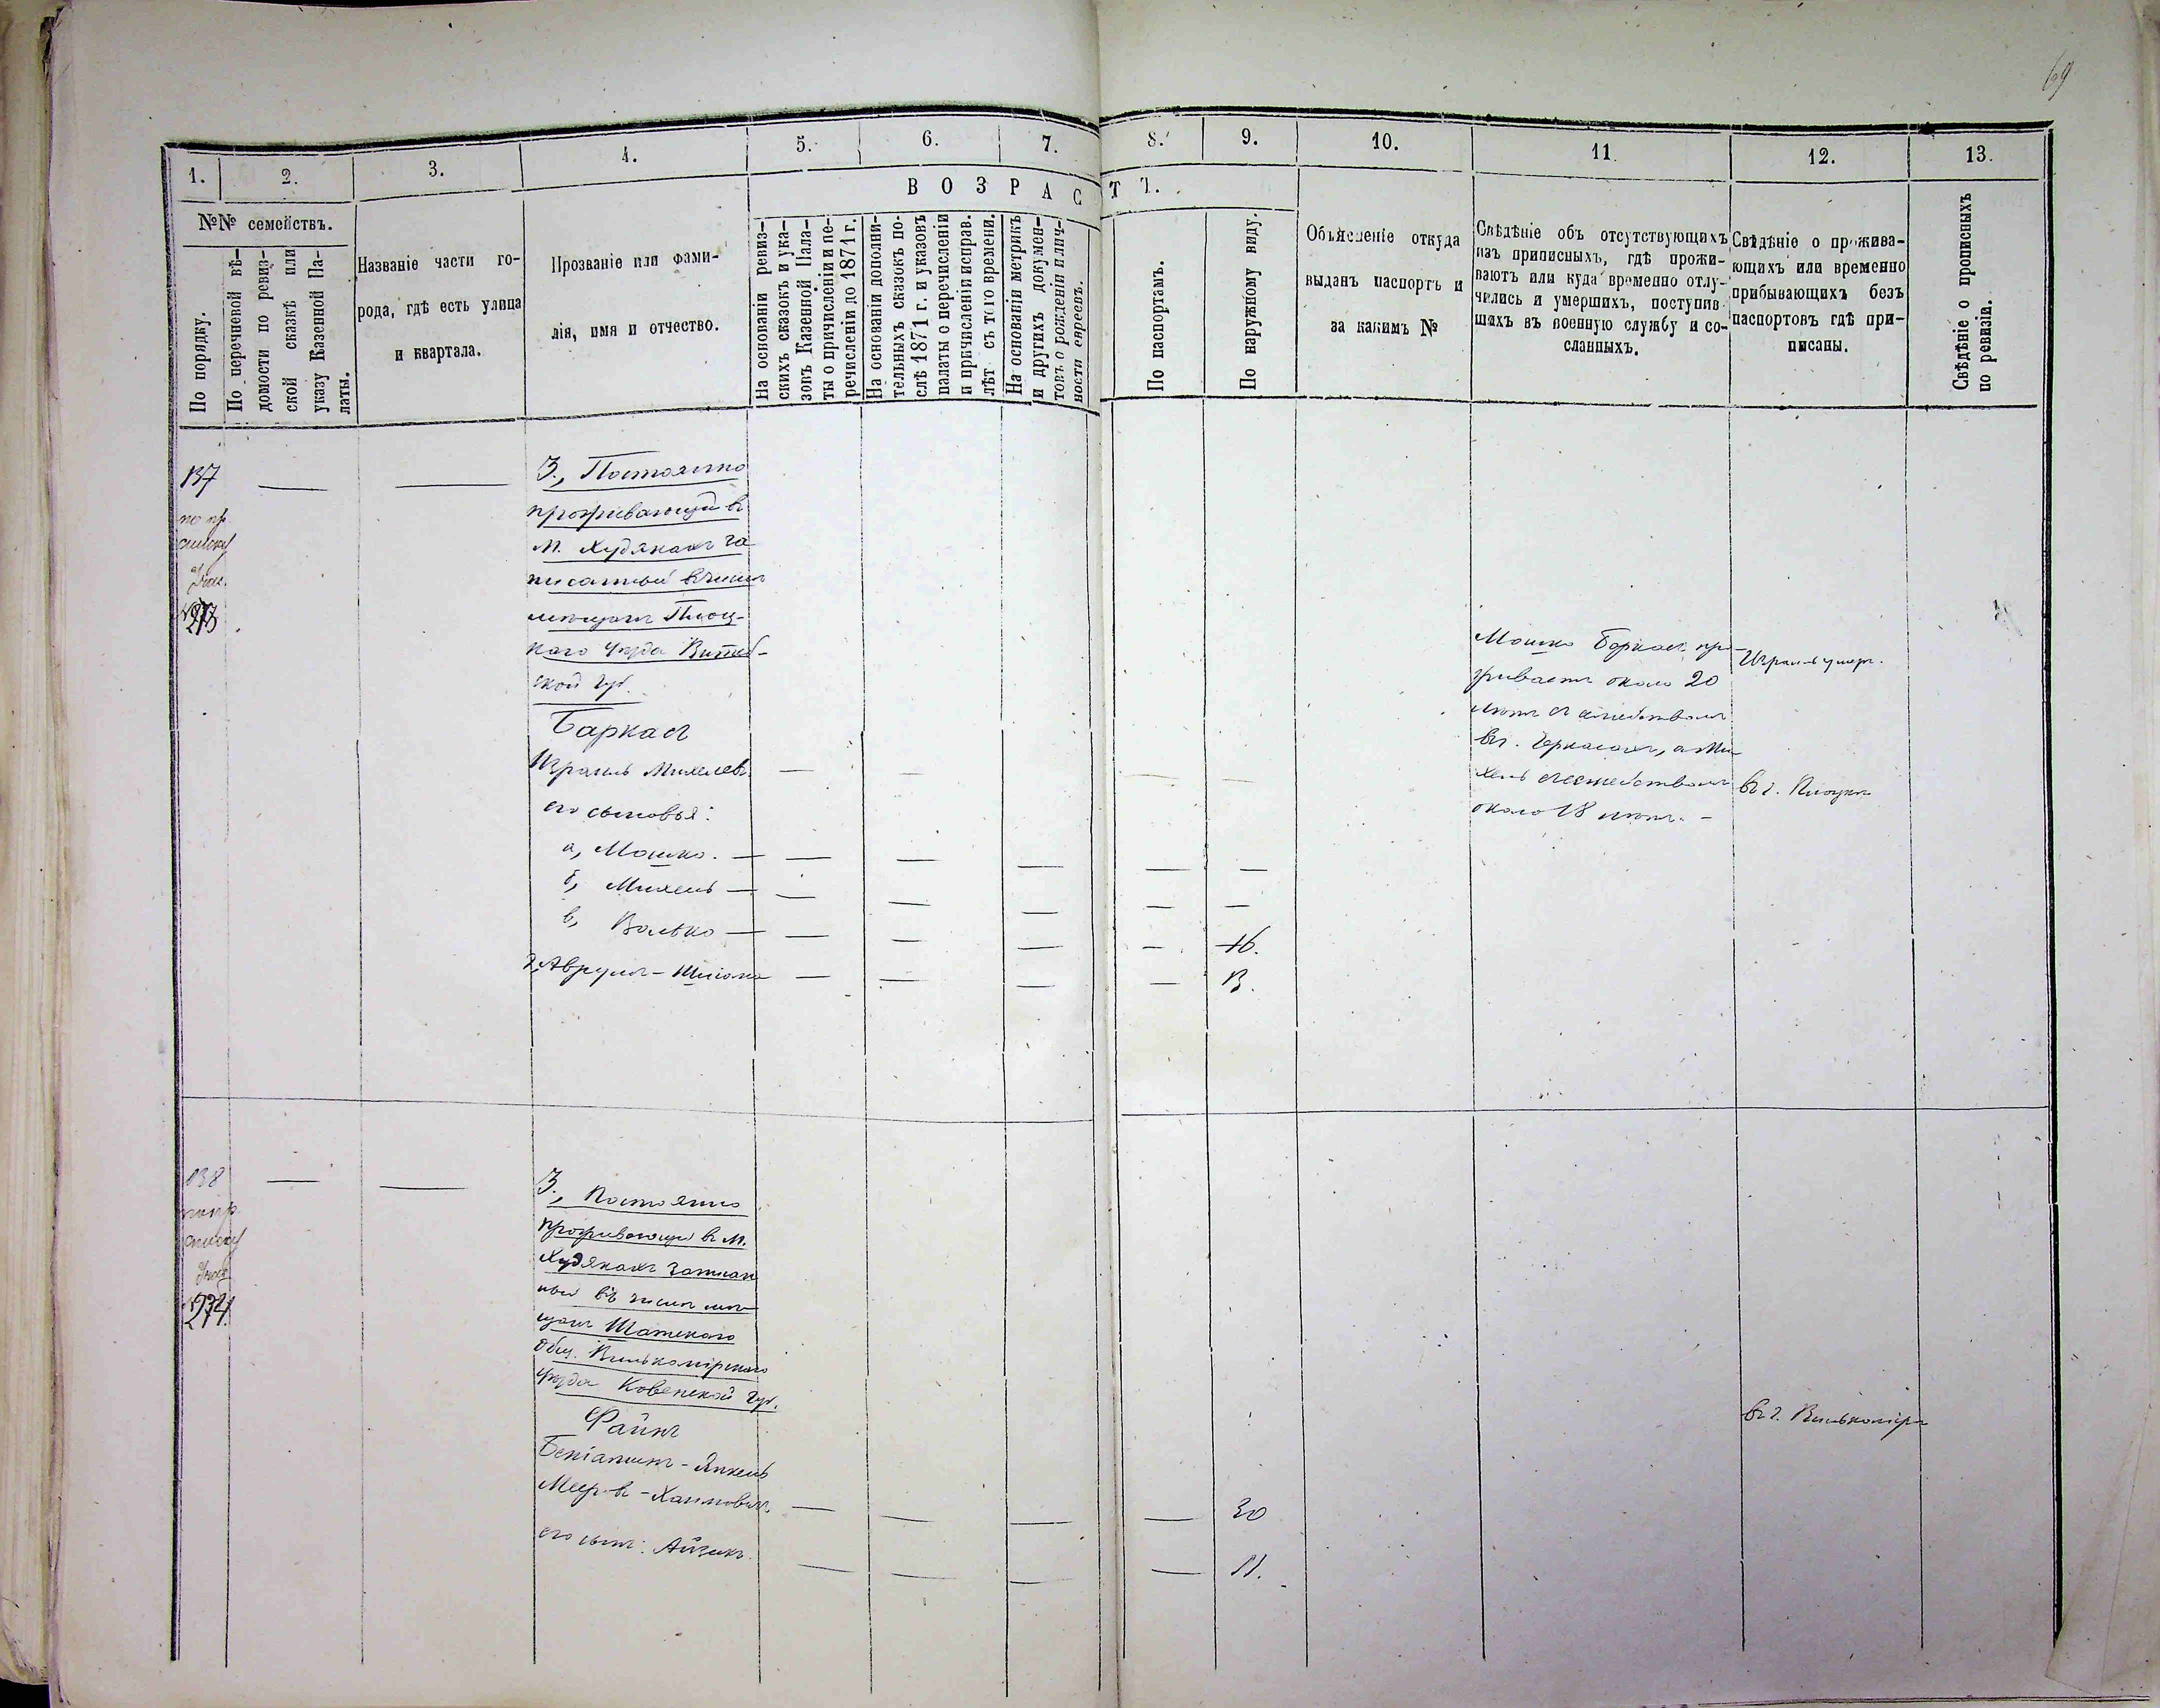 69
1.
2.
3.
4.
5.
6.
7.
8.
9.
10.
11.
12.
13.
ВОЗРАСТЪ.
№№ семействъ.
По порядку.
По перечневой вѣ-
домости по ревиз-
ской сказкѣ или
указу Казенной Па-
латы.
Названіе части го-
рода, гдѣ есть улица
и квартала.
Прозваніе или фами-
лія, имя и отчество.
На основаніи ревиз-
скихъ сказокъ и ука-
зовъ Казенной Пала-
ты о причисленіи и пе-
речисленіи до 1871 г.
На основаніи дополни-
тельныхъ сказокъ по-
слѣ 1871 г. и указовъ
палаты о перечисленіи
и причисленіи исправ.
лѣт съ того времени.
На основаніи метрикъ
и другихъ докумен-
товъ о рожденіи и лич-
ности евреевъ.
По паспортамъ.
По наружному виду.
Объясненіе откуда
выданъ паспортъ и
за какимъ №
Свѣдѣніе объ отсутствующихъ
изъ приписныхъ, гдѣ прожи-
ваютъ или куда временно отлу-
чились и умершихъ, поступив-
шихъ въ военную службу и со-
сланныхъ.
Свѣдѣніе о прожива-
ющихъ или временно
прибывающихъ безъ
паспортовъ гдѣ при-
писаны.
Свѣдѣніе о прописныхъ
по ревизіи.
137
по пр.
списку
273
3., Постоянно
проживающій въ
м. Худякахъ за
писанный въ числѣ
мѣщанъ Плоц-
каго уѣзда Витеб-
ской губ.
Баркасъ
Израиль Михелевъ
его сыновья:
а, Мошко. —
б, Михель —
в, Волько —
г, Аврумъ-Шлiома
16.
13.
Мошко Баркасъ про
живаетъ около 20
лѣтъ съ семействомъ
въ г. Черкасахъ, а Ми
хель съ семействомъ
около 18 лѣтъ. —
Израиль умеръ.
въ г. Плоцкѣ
138
по пр.
списку
274.
3., Постоянно
проживающій въ м.
Худякахъ записан
ный въ числѣ мѣ
щанъ Шатскаго
общ. Вилькомірскаго
уѣзда Ковенской губ.
Файнъ
Беніаминъ-Янкель
Мееровъ-Хаимовичъ,
его сынъ: Айзикъ
30
11.
въ г. Вилькомірѣ